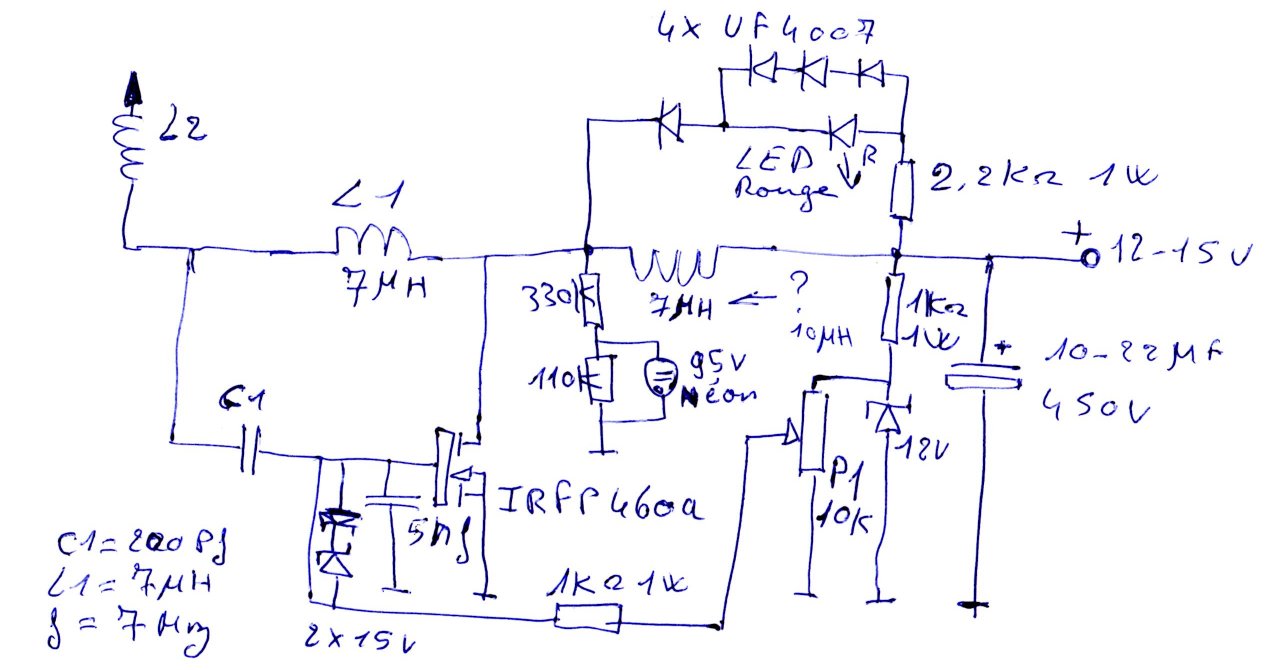 4x UF4007
L2
L1
7µH
LED R
Rouge
2,2KΩ 1W
+
12-15V
330K
7µH ← ?
10µH
1KΩ
1W
+
10-22µF
450V
110K
95V
Néon
C1
12V
P1
10K
IRFP460a
5nf
C1=200Pf
L1=7µH
f=7Mhz
1KΩ 1W
2x15V